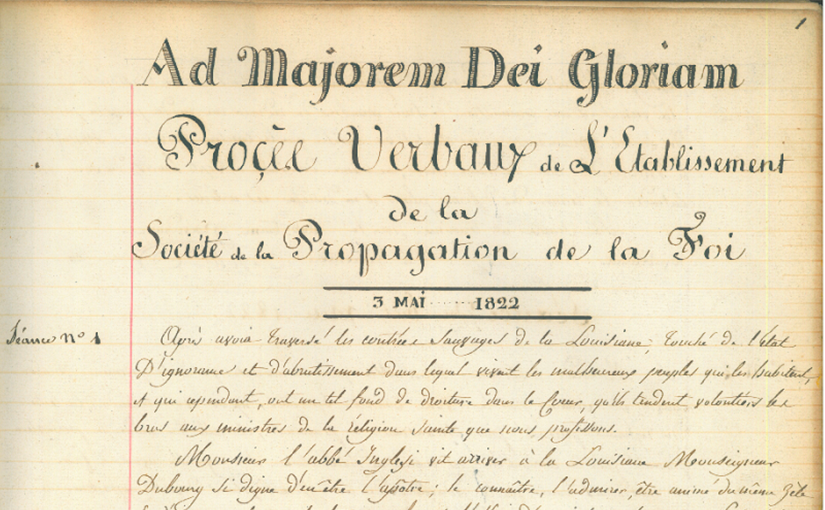 1
Ad Majorem Dei Gloriam
Proçès Verbaux de L'Etablissement
de la
Société de la Propagation de la Foi
3 MAI ...... 1822
Séance nº 1
Après avoir traversé les contrées sauvages de la Louisiane; touché de l'état
D'ignorance et d'abrutissement dans lequel vivent les malheureux peuples qui les habitent,
et qui cependant, ont un tel fond de droiture dans le Cœur, qu'ils tendent volontiers les
bras aux ministres de la religion sainte que nous professons.
Monsieur l'abbé Inglesi vit arriver à la Louisiane Monseigneur
Dubourg si digne d'en être l'apôtre; le connaître, l'admirer, être animé du même zèle